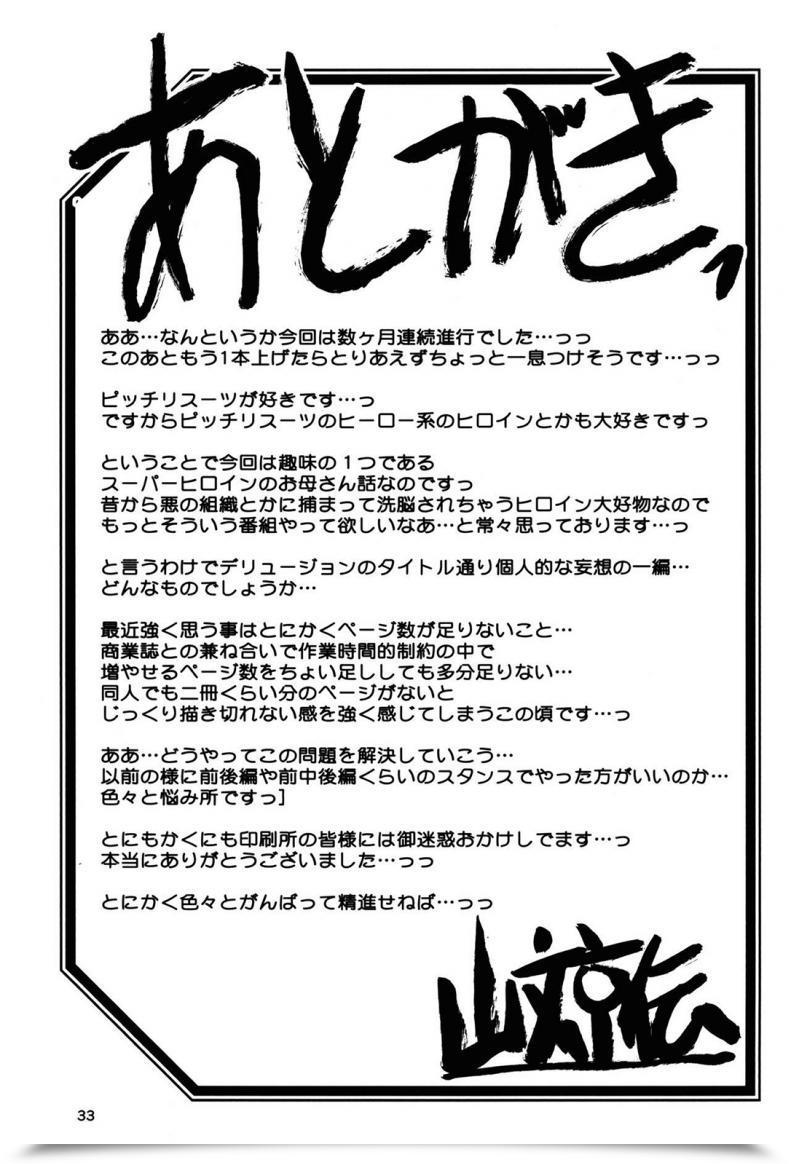 あとがきっ
ああ…なんというか今回は数ヶ月連続進行でした…っっ
このあともう1本上げたらとりあえずちょっと一息つけそうです…っっ
ピッチリスーツが好きです…っ
ですからピッチリスーツのヒーロー系のヒロインとかも大好きですっ
ということで今回は趣味の１つである
スーパーヒロインのお母さん話なのですっ
昔から悪の組織とかに捕まって洗脳されちゃうヒロイン大好物なので
もっとそういう番組やって欲しいなあ…と常々思っております…っ
と言うわけでデリュージョンのタイトル通り個人的な妄想の一編…
どんなものでしょうか…
最近強く思う事はとにかくページ数が足りないこと…
商業誌との兼ね合いで作業時間的制約の中で
増やせるページ数をちょい足ししても多分足りない…
同人でも二冊くらい分のページがないと
じっくり描き切れない感を強く感じてしまうこの頃です…っ
ああ…どうやってこの問題を解決していこう…
以前の様に前後編や前中後編くらいのスタンスでやった方がいいのか…
色々と悩み所ですっ]
とにもかくにも印刷所の皆様には御迷惑おかけしでます…っ
本当にありがとうございました…っっ
とにかく色々とがんばって精進せねば…っっ
山文京伝
33